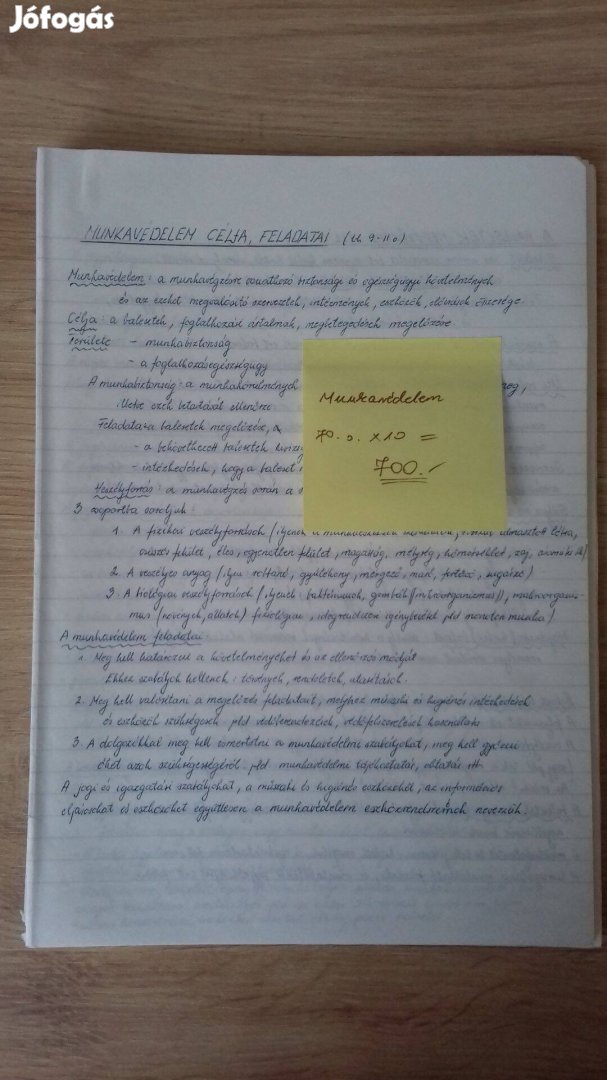 Jófogás
MUNKAVÉDELEM CÉLJA, FELADATAI
Munkavédelem: a munkavégzésre vonatkozó biztonsági és egészségügyi követelmények
és az ezeket megvalósító szervezetek, intézmények, eszközök, előírások összessége.
Célja: a balesetek, foglalkozási ártalmak, megbetegedések megelőzése
Területe - munkabiztonság
- a foglalkozásegészségügy
A munkabiztonság: a munkakörülmények
illetve ezek betartását ellenőrzi
Feladata: a balesetek megelőzése, a
- a bekövetkezett balesetek
- intézkedések, hogy a baleset
Veszélyforrás: a munkavégzés során a
3 csoportba soroljuk:
Munkavédelem
70.o. x10 =
700.✓
1. A fizikai veszélyforrások
csúszós felület, éles, egyenetlen felület, magasság, mélység, hőmérséklet, zaj,
2. A veszélyes anyag (ilyen robbanó, gyúlékony, mérgező, maró, fertőző, sugárzó)
3. A biológiai veszélyforrások (ilyenek: baktériumok, gombák (mikroorganizmus)), makroorganiz-
mus (növények, állatok) fiziológiai, idegrendszeri igénybevétel pld monoton munka)
A munkavédelem feladatai
1. Meg kell határozni a követelményeket és az ellenőrzés módját
Ehhez szabályok kellenek: törvények, rendeletek, utasítások.
2. Meg kell valósítani a megelőzés feladatait, melyhez műszaki és higiénés intézkedések
és eszközök szükségesek. pld védőberendezések, védőfelszerelések használata
3. A dolgozókkal meg kell ismertetni a munkavédelmi szabályokat, meg kell győzni
őket azok szükségességéről. Pld munkavédelmi tájékoztatás, oktatás
A jogi és igazgatási szabályokat, a műszaki és higiénés eszközöket, az információs
eljárásokat és eszközöket együttesen a munkavédelem eszközrendszerének nevezzük.